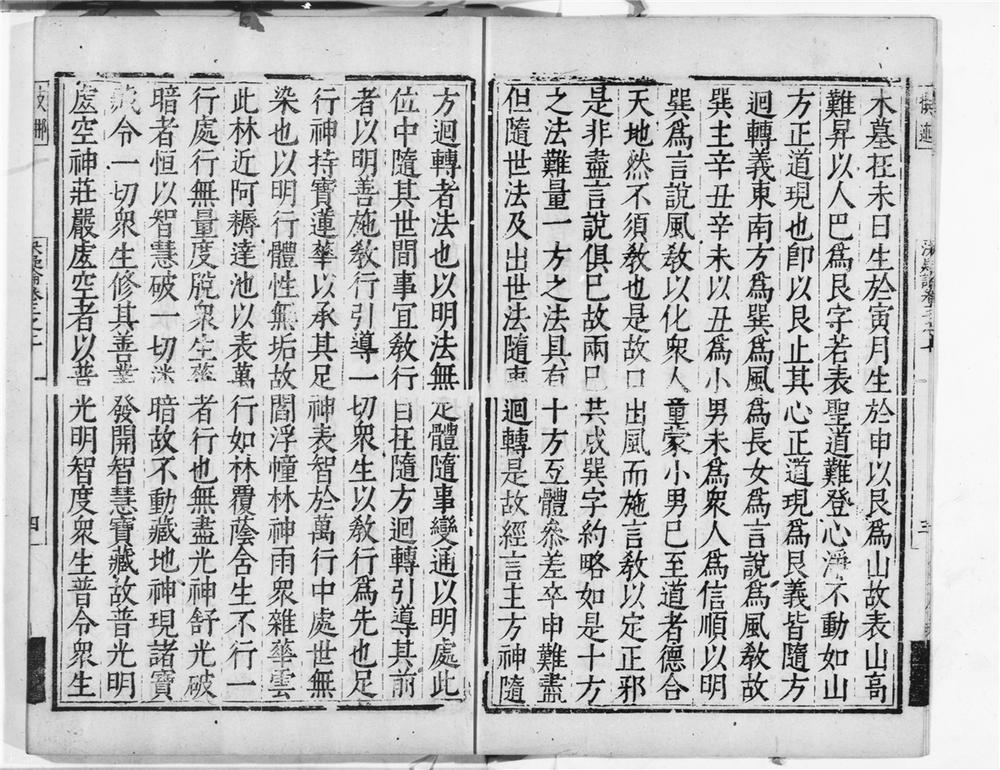 木墓在未日生於寅月生於申以艮爲山故表山高
難昇以人巴爲艮字若表聖道難登心淨不動如山
方正道現也卽以艮止其心正道現爲艮義皆隨方
迴轉義東南方爲巽爲風爲長女爲言說爲風教故
巽主辛丑辛未以丑爲小男未爲衆人爲信順以明
巽爲言說風教以化衆人童蒙小男已至道者德合
天地然不須教也是故口出風而施言教以定正邪
是非盡言說俱已故兩巳共成巽字約略如是十方
之法難量一方之法具有十方互體叅差卒申難盡
但隨世法及出世法隨事迴轉是故經言主方神隨
方迴轉者法也以明法無定體隨事變通以明處此
位中隨其世間事宜教行自在隨方迴轉引導其前
者以明善施教行引導一切衆生以教行爲先也足
行神持寶蓮華以承其足神表智於萬行中處世無
染也以明行體性無垢故閻浮幢林神雨衆雜華雲
此林近阿耨達池以表萬行如林覆蔭含生不行一
行處行無量度脫衆生慈者行也無盡光神舒光破
暗者恒以智慧破一切迷暗故不動藏地神現諸寶
藏令一切衆生修其善業發開智慧寶藏故普光明
虛空神莊嚴虛空者以普光明智度衆生普令衆生
三
四